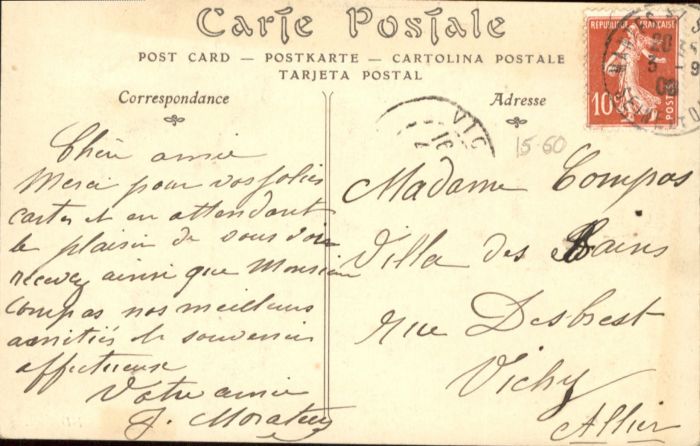 Carte Postale
POST CARD — POSTKARTE — CARTOLINA POSTALE
TARJETA POSTAL
Correspondance
Adresse
RÉPUBLIQUE FRANÇAISE
10
POSTES
20
3 - 9
08
VIC
15-60
Chère amie
Merci pour vos jolies
cartes et en attendant
le plaisir de vous voir
recevez ainsi que Monsieur
Compas nos meilleurs
amitiés de souvenir
affectueuse
Votre amie
J.
Madame Compas
Villa des Bains
rue Desbrest
Vichy
Allier